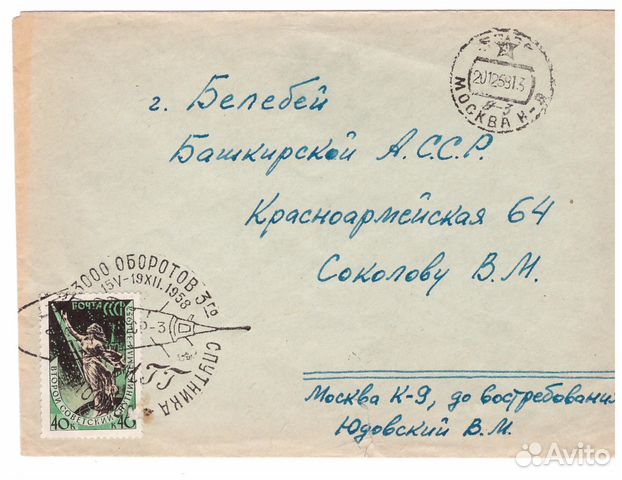 20125813
МОСКВА К-9
г. Белебей
Башкирской А.С.С.Р.
Красноармейская 64
Соколову В.М.
3000 ОБОРОТОВ 3го СПУТНИКА
15V-19XII.1958
ПОЧТА СССР
ВТОРОЙ СОВЕТСКИЙ
40к 40
МГГ
Москва К-9, до востребовани
Юдовский В.М.
Avito